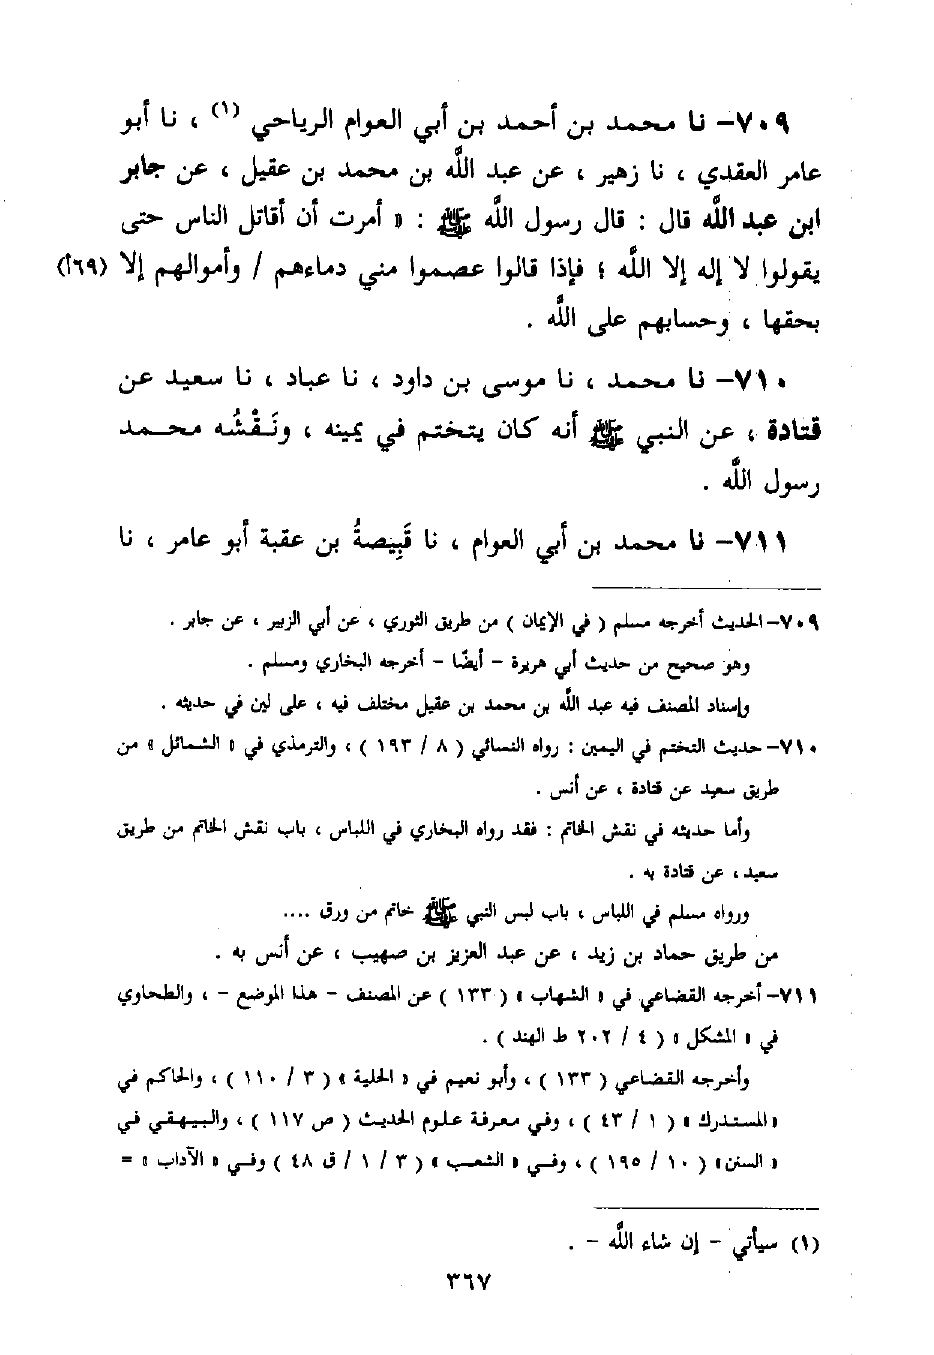 ٧٠٩- نا محمد بن أحمد بن أبي العوام الرياحي (١) ، نا أبو
عامر العقدي ، نا زهير ، عن عبد اللَّه بن محمد بن عقيل ، عن جابر
ابن عبد اللَّه قال : قال رسول اللَّه ﷺ : « أمرت أن أقاتل الناس حتى
يقولوا لا إله إلا اللَّه ؛ فإذا قالوا عصموا مني دماءهم / وأموالهم إلا (٦٩أ)
بحقها ، وحسابهم على اللَّه .
٧١٠- نا محمد ، نا موسى بن داود ، نا عباد ، نا سعيد عن
قتادة ، عن النبي ﷺ أنه كان يتختم في يمينه ، ونَـقْشُه محـمـد
رسول اللَّه .
٧١١- نا محمد بن أبي العوام ، نا قَبِيصةُ بن عقبة أبو عامر ، نا
٧٠٩- الحديث أخرجه مسلم ( في الإيمان ) من طريق الثوري ، عن أبي الزبير ، عن جابر .
وهو صحيح من حديث أبي هريرة - أيضًا - أخرجه البخاري ومسلم .
وإسناد المصنف فيه عبد اللَّه بن محمد بن عقيل مختلف فيه ، على لين في حديثه .
٧١٠- حديث التختم في اليمين : رواه النسائي ( ٨ / ١٩٣ ) ، والترمذي في « الشمائل » من
طريق سعيد عن قتادة ، عن أنس .
وأما حديثه في نقش الخاتم : فقد رواه البخاري في اللباس ، باب نقش الخاتم من طريق
سعيد ، عن قتادة به .
ورواه مسلم في اللباس ، باب لبس النبي ﷺ خاتم من ورق ....
من طريق حماد بن زيد ، عن عبد العزيز بن صهيب ، عن أنس به .
٧١١- أخرجه القضاعي في « الشهاب » ( ١٣٣ ) عن المصنف - هذا الموضع - ، والطحاوي
في « المشكل » ( ٤ / ٢٠٢ ط الهند ) .
وأخرجه القضاعي ( ١٣٣ ) ، وأبو نعيم في « الحلية » ( ٣ / ١١٠ ) ، والحاكم في
« المستدرك » ( ١ / ٤٣ ) ، وفي معرفة علوم الحديث ( ص ١١٧ ) ، والبيهقي في
« السنن » ( ١٠ / ١٩٥ ) ، وفي « الشعب » ( ٣ / ١ / ق ٤٨ ) وفي « الآداب » =
(١) سيأتي - إن شاء اللَّه - .
٣٦٧